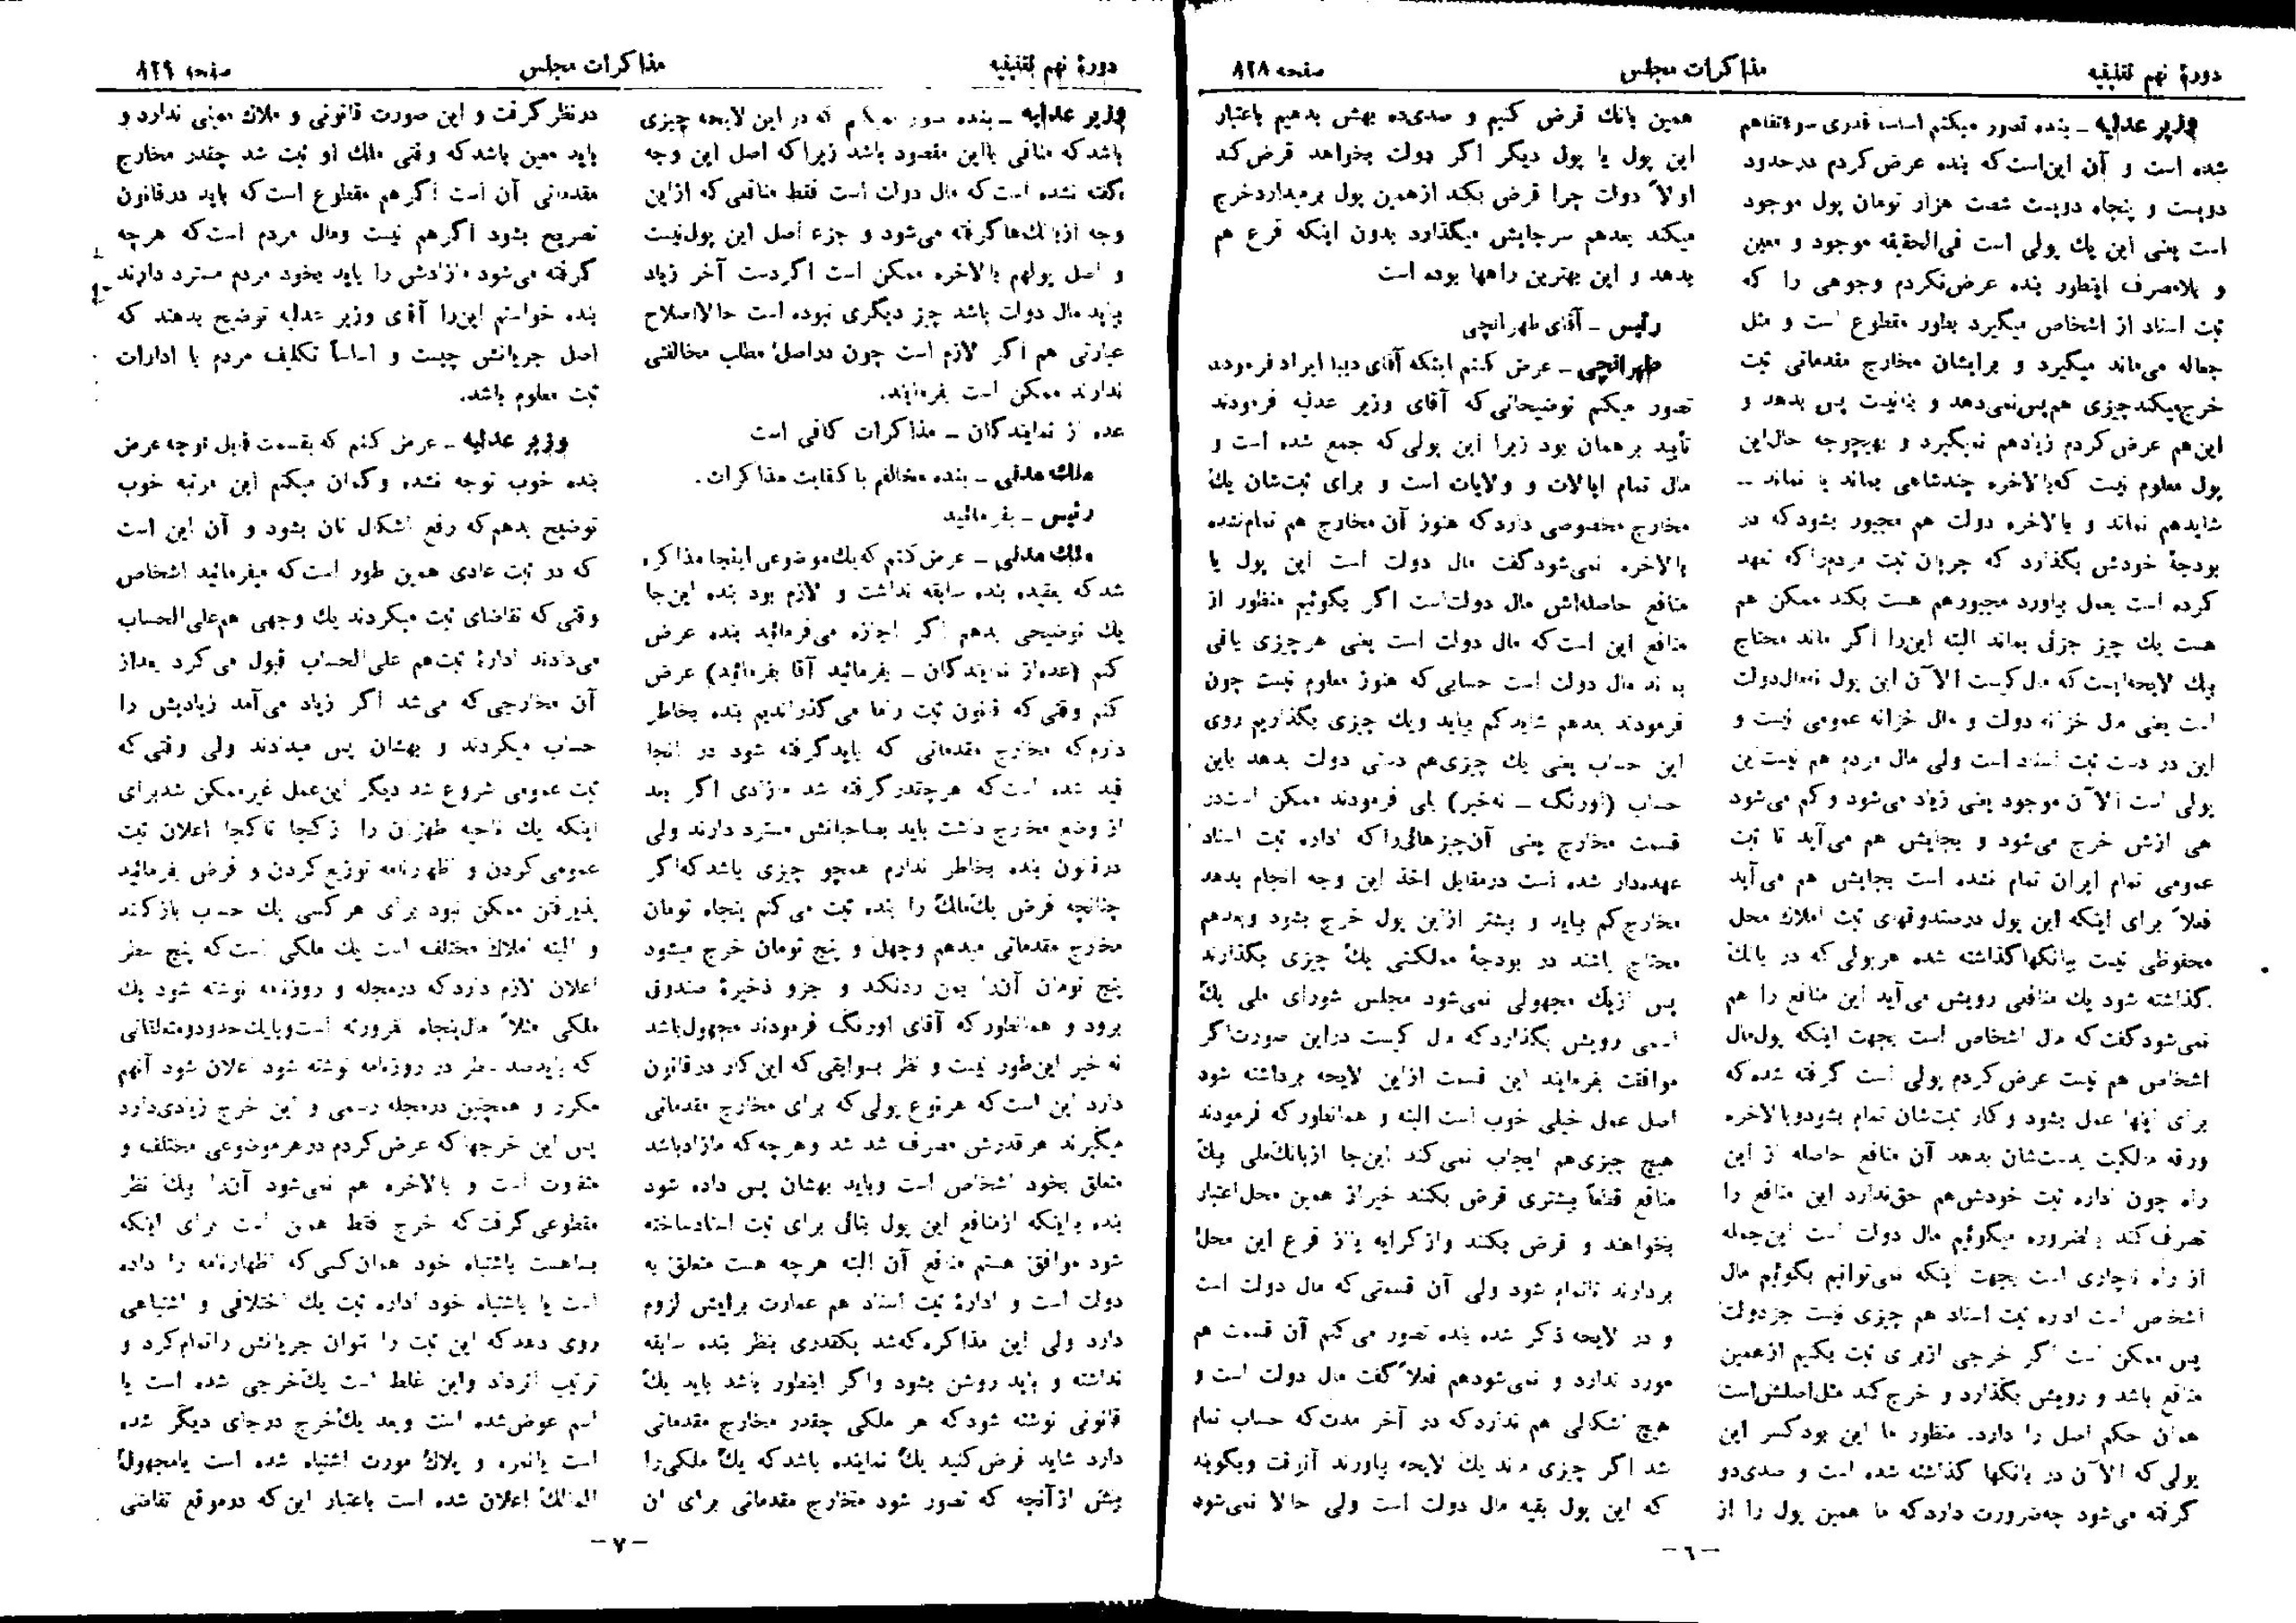 دورهٔ نهم تقنینیه
مذاکرات مجلس
صفحه ۸۲۸
وزیر عدلیه ـ بنده تصور میکنم اساساً قدری سوءتفاهم
شده است و آن این‌است که بنده عرض کردم در حدود
دویست و پنجاه دویست شصت هزار تومان پول موجود
است یعنی این یك پولی است فی‌الحقیقه موجود و معین
و بلامصرف اینطور بنده عرض نکردم وجوهی را که
ثبت اسناد از اشخاص میگیرد بطور مقطوع است و مثل
جعاله می‌ماند میگیرد و برایشان مخارج مقدماتی ثبت
خرج میکند چیزی هم پس نمی‌دهد و بنا نیست پس بدهد و
این هم عرض کردم زیادهم نمیگیرد و بهیچوجه حال این
پول معلوم نیست که بالاخره چند شاهی بماند یا نماند ـ
شایدهم نماند و بالاخره دولت هم مجبور بشود که در
بودجهٔ خودش بگذارد که جریان ثبت مردم را که تعهد
کرده است بعمل بیاورد مجبورهم هست بکند ممکن هم
هست یك چیز جزئی بماند البته این‌را اگر ماند محتاج
یك لایحه‌ایست که مال کیست الآن این پول نه مال دولت
است یعنی مال خزانه دولت و مال خزانه عمومی نیست و
این در دست ثبت اسناد است ولی مال مردم هم نیست این
پولی است الآن موجود یعنی زیاد می‌شود و کم می‌شود
هی ازش خرج می‌شود و بجایش هم می‌آید تا ثبت
عمومی تمام ایران تمام نشده است بجایش هم می‌آید
فعلاً برای اینکه این پول در صندوقهای ثبت املاك محل
محفوظی نیست ببانکها گذاشته شده هر پولی که در بانك
گذاشته شود یك منافعی رویش می‌آید این منافع را هم
نمی‌شود گفت که مال اشخاص است بجهت اینکه پول مال
اشخاص هم نیست عرض کردم پولی است گرفته شده که
برای اینها عمل بشود و کار ثبت‌شان تمام بشود و بالاخره
ورقه مالکیت بدست‌شان بدهد آن منافع حاصله از این
راه چون اداره ثبت خودش هم حق ندارد این منافع را
تصرف کند بالضروره میگوئیم مال دولت است این جمله
از راه ناچاری است بجهت اینکه نمی‌توانیم بگوئیم مال
اشخاص است اداره ثبت اسناد هم چیزی نیست جز دولت
پس ممکن است اگر خرجی از برای ثبت بکنیم از همین
منافع باشد و رویش بگذارد و خرج کند مثل اصلش است
همان حکم اصل را دارد. منظور ما این بود کسر این
پولی که الآن در بانکها گذاشته شده است و صدی دو
گرفته می‌شود چه ضرورت دارد که ما همین پول را از
ـ ٦ ـ
همین بانك قرض کنیم و صدی ده بهش بدهیم باعتبار
این پول یا پول دیگر اگر دولت بخواهد قرض کند
اولاً دولت چرا قرض بکند از همین پول بر میدارد خرج
میکند بعدهم سر جایش میگذارد بدون اینکه فرع هم
بدهد و این بهترین راهها بوده است
رئیس ـ آقای طهرانچی
طهرانچی ـ عرض کنم اینکه آقای دیبا ایراد فرمودند
تصور میکنم توضیحاتی که آقای وزیر عدلیه فرمودند
تأیید بر همان بود زیرا این پولی که جمع شده است و
مال تمام ایالات و ولایات است و برای ثبت‌شان یك
مخارج مخصوصی دارد که هنوز آن مخارج هم تمام نشده
بالاخره نمی‌شود گفت مال دولت است این پول یا
منافع حاصله‌اش مال دولت است اگر بگوئیم منظور از
منافع این است که مال دولت است یعنی هر چیزی باقی
بماند مال دولت است حسابی که هنوز معلوم نیست چون
فرمودند بعدهم شاید کم بیاید و یك چیزی بگذاریم روی
این حساب یعنی یك چیزی هم دستی دولت بدهد باین
حساب (اورنگ ـ نه‌خیر) بلی فرمودند ممکن است در
قسمت مخارج یعنی آن چیزهائی را که اداره ثبت اسناد
عهده‌دار شده است در مقابل اخذ این وجه انجام بدهد
مخارج کم بیاید و بیشتر از این پول خرج بشود و بعدهم
محتاج باشند در بودجهٔ مملکتی یك چیزی بگذارند
پس از یك مجهولی نمی‌شود مجلس شورای ملی یك
اسمی رویش بگذارد که مال کیست در این صورت اگر
موافقت بفرمایند این قسمت از این لایحه برداشته شود
اصل عمل خیلی خوب است البته و همانطور که فرمودند
هیچ چیزی هم ایجاب نمی‌کند این‌جا از بانك ملی یك
منافع قطعاً بیشتری قرض بکنند خیر از همین محل اعتبار
بخواهند و قرض بکنند و از کرایه یا از فرع این محل
بردارند تا تمام شود ولی آن قسمتی که مال دولت است
و در لایحه ذکر شده بنده تصور می‌کنم آن قسمت هم
مورد ندارد و نمی‌شودهم فعلاً گفت مال دولت است و
هیچ اشکالی هم ندارد که در آخر مدت که حساب تمام
شد اگر چیزی ماند یك لایحه بیاورند آنوقت و بگویند
که این پول بقیه مال دولت است ولی حالا نمی‌شود
دورهٔ نهم تقنینیه
مذاکرات مجلس
صفحه ۸۲۹
وزیر عدلیه ـ بنده تصور نمیکنم که در این لایحه چیزی
باشد که منافی با این مقصود باشد زیرا که اصل این وجه
گفته نشده است که مال دولت است فقط منافعی که از این
وجه از بانك‌ها گرفته می‌شود و جزء اصل این پول نیست
و اصل پولهم بالاخره ممکن است اگر دست آخر زیاد
بیاید مال دولت باشد چیز دیگری نبوده است حالا اصلاح
عبارتی هم اگر لازم است چون در اصل مطلب مخالفتی
ندارند ممکن است بفرمایند.
عده از نمایندگان ـ مذاکرات کافی است
ملك مدنی ـ بنده مخالفم با کفایت مذاکرات.
رئیس ـ بفرمائید
ملك مدنی ـ عرض کنم که یك موضوعی اینجا مذاکره
شد که بعقیده بنده سابقه نداشت و لازم بود بنده این‌جا
یك توضیحی بدهم اگر اجازه می‌فرمائید بنده عرض
کنم (عده‌از نمایندگان ـ بفرمائید آقا بفرمائید) عرض
کنم وقتی که قانون ثبت را ما می‌گذراندیم بنده بخاطر
دارم که مخارج مقدماتی که باید گرفته شود در آنجا
قید شده است که هر چقدر گرفته شد مازادی اگر بعد
از وضع مخارج داشت باید بصاحبانش مسترد دارند ولی
در قانون بنده بخاطر ندارم همچو چیزی باشد که اگر
چنانچه فرض یك ملك را بنده ثبت می‌کنم پنجاه تومان
مخارج مقدماتی میدهم و چهل و پنج تومان خرج میشود
پنج تومان آن‌را بمن رد نکند و جزو ذخیرهٔ صندوق
برود و همانطور که آقای اورنگ فرمودند مجهول باشد
نه خیر این‌طور نیست و نظر بسوابقی که این کار در قانون
دارد این است که هر نوع پولی که برای مخارج مقدماتی
میگیرند هر قدرش مصرف شد شد و هر چه که مازاد باشد
متعلق بخود اشخاص است و باید بهشان پس داده شود
بنده با اینکه از منافع این پول بنائی برای ثبت اسناد ساخته
شود موافق هستم منافع آن البته هر چه هست متعلق به
دولت است و ادارهٔ ثبت اسناد هم عمارت برایش لزوم
دارد ولی این مذاکره که شد یکقدری بنظر بنده سابقه
نداشته و باید روشن بشود و اگر اینطور باشد باید یك
قانونی نوشته شود که هر ملکی چقدر مخارج مقدماتی
دارد شاید فرض کنید یك نماینده باشد که یك ملکی را
بیش از آنچه که تصور شود مخارج مقدماتی برای آن
ـ ٧ ـ
در نظر گرفت و این صورت قانونی و ملاك معینی ندارد و
باید معین باشد که وقتی ملك او ثبت شد چقدر مخارج
مقدماتی آن است اگر هم مقطوع است که باید در قانون
تصریح بشود اگرهم نیست و مال مردم است که هر چه
گرفته می‌شود مازادش را باید بخود مردم مسترد دارند
بنده خواستم این‌را آقای وزیر عدلیه توضیح بدهند که
اصل جریانش چیست و اساساً تکلیف مردم با ادارات
ثبت معلوم باشد.
وزیر عدلیه ـ عرض کنم که بقسمت قابل توجه عرض
بنده خوب توجه نشده و گمان میکنم این مرتبه خوب
توضیح بدهم که رفع اشکال تان بشود و آن این است
که در ثبت عادی همین طور است که میفرمائید اشخاص
وقتی که تقاضای ثبت میکردند یك وجهی هم علی‌الحساب
می‌دادند ادارهٔ ثبت هم علی‌الحساب قبول می‌کرد بعد از
آن مخارجی که می‌شد اگر زیاد می‌آمد زیادیش را
حساب میکردند و بهشان پس میدادند ولی وقتی که
ثبت عمومی شروع شد دیگر این عمل غیر ممکن شد برای
اینکه یك ناحیه طهران را از کجا تا کجا اعلان ثبت
عمومی کردن و اظهارنامه توزیع کردن و فرض بفرمائید
پذیرفتن ممکن نبود برای هر کسی یك حساب باز کند
و البته املاك مختلف است یك ملکی است که پنج سطر
اعلان لازم دارد که در مجله و روزنامه نوشته شود یك
ملکی مثلاً مال پنجاه نفر ورثه است و با یك حدود و متعلقاتی
که باید صد سطر در روزنامه نوشته شود اعلان شود آنهم
مکرر و همچنین در مجله رسمی و این خرج زیادی دارد
پس این خرجها که عرض کردم در هر موضوعی مختلف و
متفاوت است و بالاخره هم نمی‌شود آن‌را یك نظر
مقطوعی گرفت که خرج فقط همین است برای اینکه
بسا هست باشتباه خود همان کسی که اظهارنامه را داده
است یا باشتباه خود اداره ثبت یك اختلافی و اشتباهی
روی دهد که این ثبت را نتوان جریانش را تمام کرد و
ترتیب اثر داد و این غلط است یك خرجی شده است یا
اسم عوض شده است و بعد یك خرج در جای دیگر شده
است یا نمره و پلاك مورت اشتباه شده است یا مجهول
المالك اعلان شده است باعتبار این که در موقع تقاضی